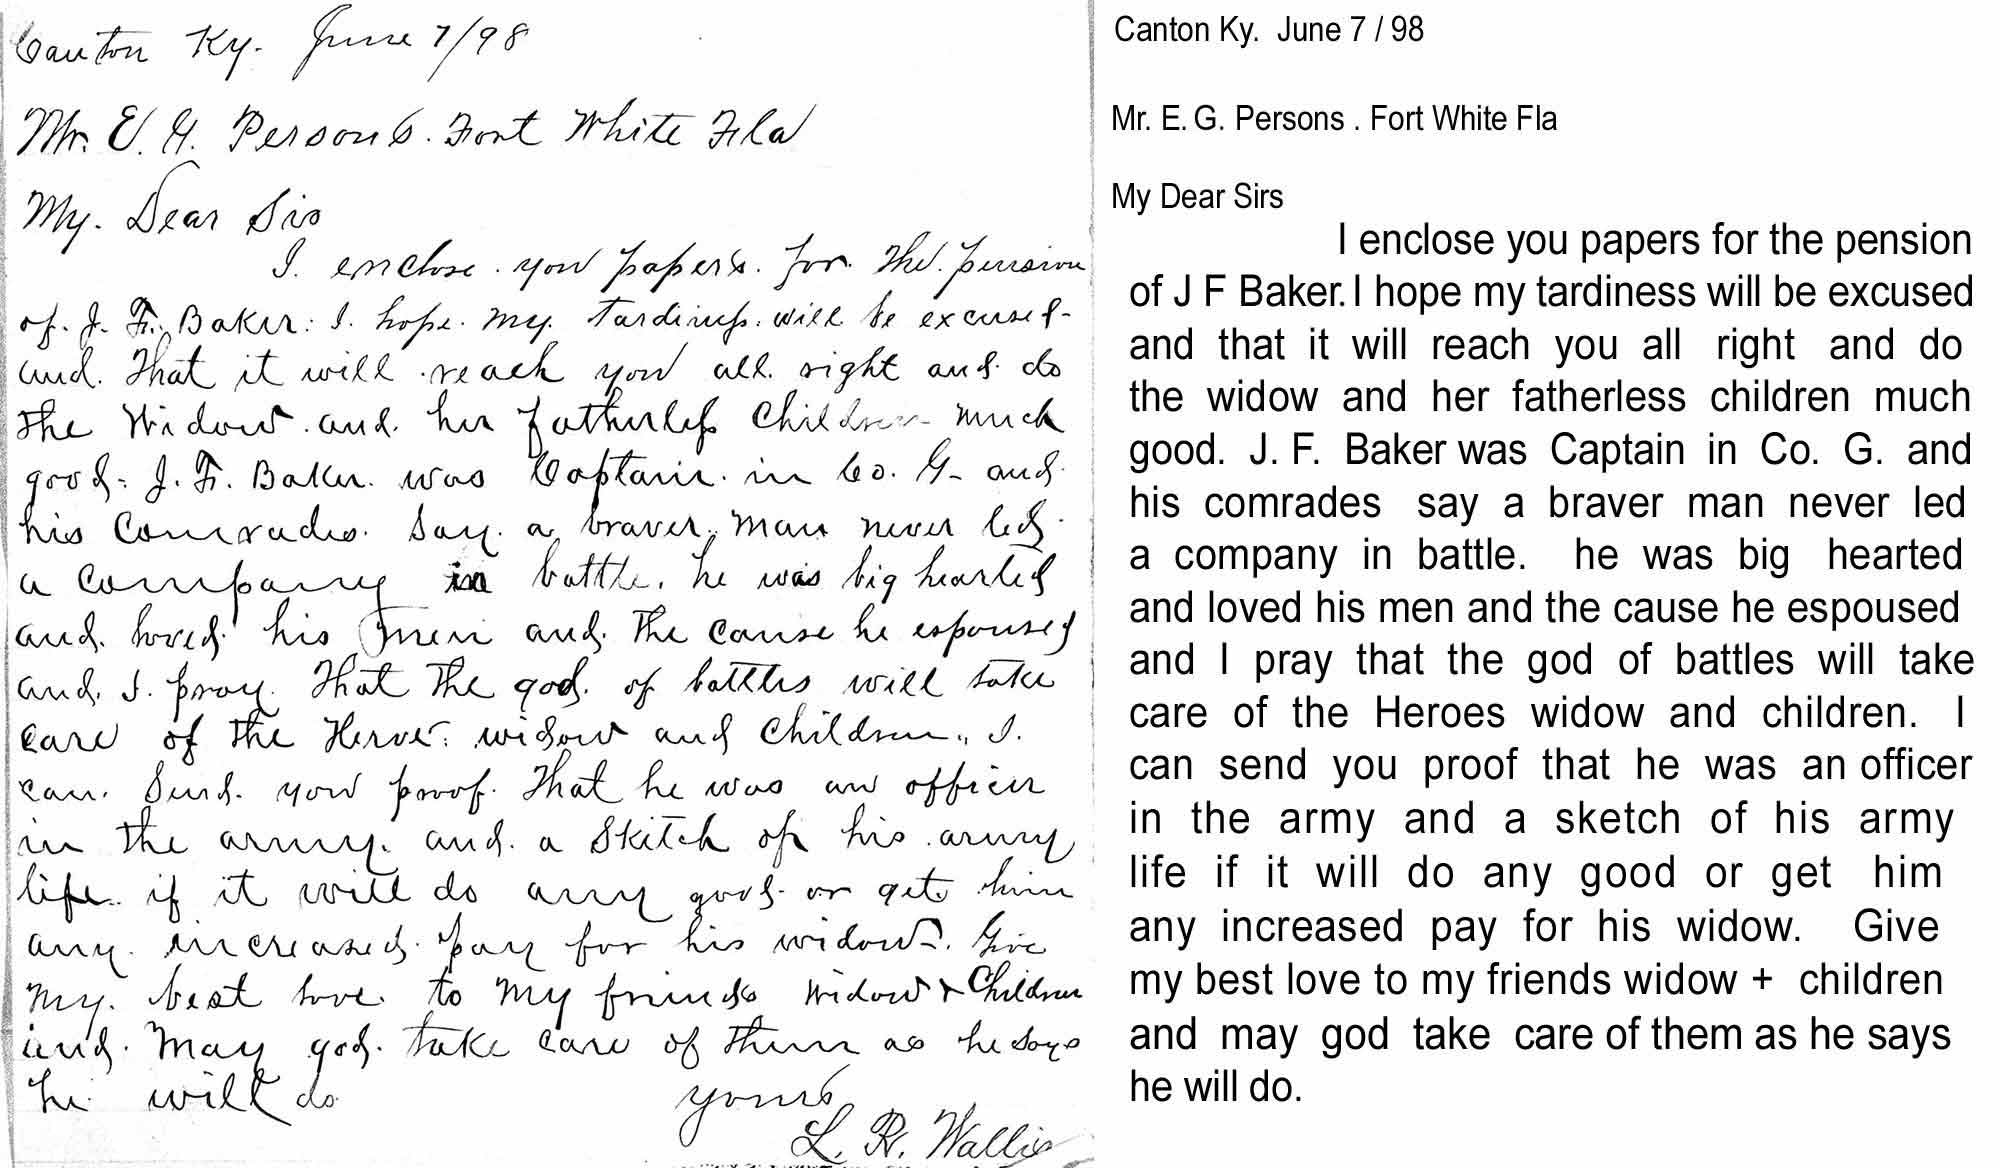 Canton Ky. June 7/98
Mr. E. G. Persons. Fort White Fla
My. Dear Sir
I. enclose. you papers. for. the. pension
of. J. F. Baker: I. hope. my. tardiness. will be excused-
and. that it will reach you all. right and do
the Widow and. her fatherless Children much
good- J. F. Baker. was Captain. in Co. G- and
his Comrades. Say. a braver. man never led
a Company in battle. he was big hearted
and. loved. his men and. the cause he espoused
and. I. pray. that the god. of battles will take
care of the Heroes. widow and Children. I.
can. Send. you proof. that he was an officer
in the army. and. a Sketch of his army
life. if it will do any good or get him
any. increased. pay for his widow. Give
my. best love to my friends Widow + Children
and. may god. take care of them as he says
he will do
yours
L. R. Wallis
Canton Ky. June 7 / 98
Mr. E. G. Persons . Fort White Fla
My Dear Sirs
I enclose you papers for the pension
of J F Baker. I hope my tardiness will be excused
and that it will reach you all right and do
the widow and her fatherless children much
good. J. F. Baker was Captain in Co. G. and
his comrades say a braver man never led
a company in battle. he was big hearted
and loved his men and the cause he espoused
and I pray that the god of battles will take
care of the Heroes widow and children. I
can send you proof that he was an officer
in the army and a sketch of his army
life if it will do any good or get him
any increased pay for his widow. Give
my best love to my friends widow + children
and may god take care of them as he says
he will do.